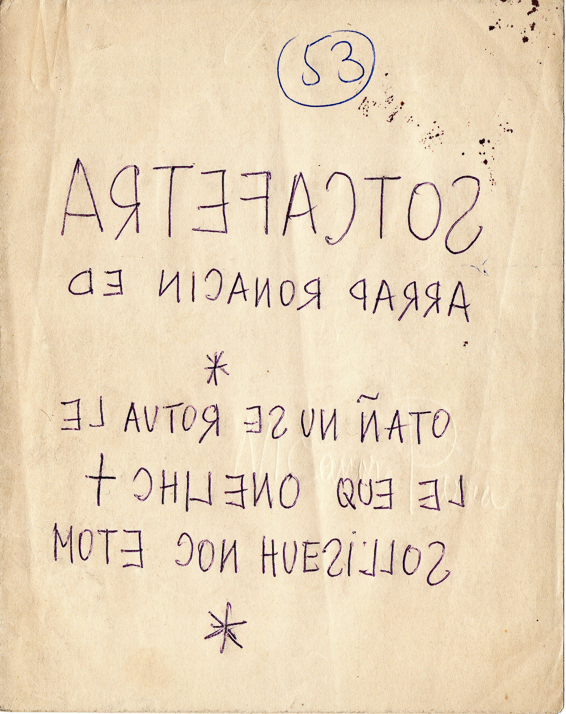 53
ARTEFACTOS
DE NICANOR PARRA
*
EL AUTOR ES UN ÑATO
+ CHILENO QUE EL
MOTE CON HUESILLOS
*